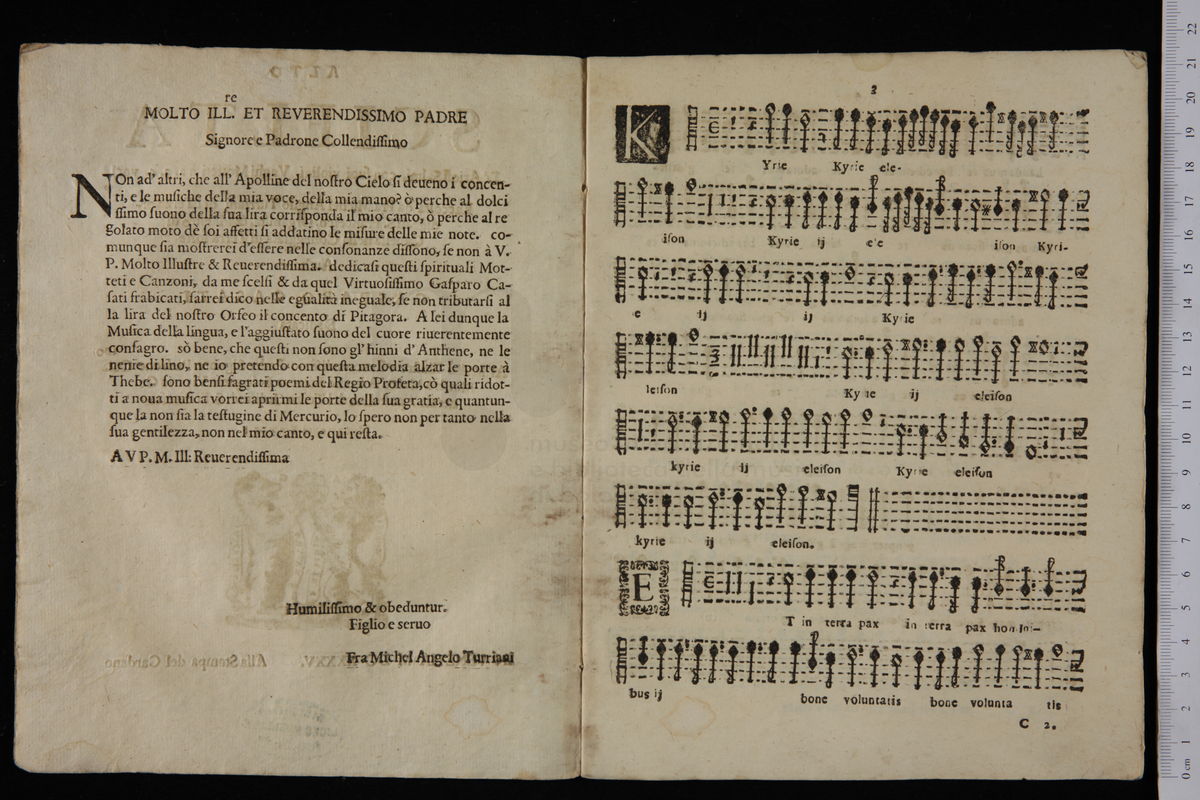 re
MOLTO ILL. ET REVERENDISSIMO PADRE
Signore e Padrone Collendiſſimo
NOn ad' altri, che all' Apolline del noſtro Cielo ſi deueno i concen-
ti, e le muſiche della mia voce, della mia mano? ò perche al dolci
ſſimo ſuono della ſua lira corriſponda il mio canto, ò perche al re
golato moto dè ſoi affetti ſi addatino le miſure delle mie note. co-
munque ſia moſtrerei d'eſſere nelle conſonanze diſſono, ſe non à V.
P. Molto Illuſtre & Reuerendiſſima. dedicaſi queſti ſpirituali Mot-
teti e Canzoni, da me ſcelſi & da quel Virtuoſiſſimo Gaſparo Ca-
ſati frabicati, ſarrei dico nelle egualità ineguale, ſe non tributarſi al
la lira del noſtro Orfeo il concento di Pitagora. A lei dunque la
Muſica della lingua, e l'aggiuſtato ſuono del cuore riuerentemente
conſagro. sò bene, che queſti non ſono gl' hinni d' Anthene, ne le
nenie di lino, ne io pretendo con queſta melodia alzar le porte à
Thebe. ſono benſi ſagrati poemi del Regio Profeta, cò quali ridot-
ti a noua muſica vorrei aprirmi le porte della ſua gratia, e quantun-
que la non ſia la teſtugine di Mercurio, lo ſpero non per tanto nella
ſua gentilezza, non nel mio canto, e qui reſta.
A V P. M. Ill: Reuerendiſſima
Humiliſſimo & obeduntur.
Figlio e seruo
Fra Michel Angelo Turriani
3
K
Yrie Kyrie ele-
iſon Kyrie ij ele iſon Kyri-
e ij ij Kyrie
leiſon Kyrie ij eleiſon
kyrie ij eleiſon Kyrie eleiſon
kyrie ij eleiſon.
E
T in terra pax in terra pax homini-
bus ij bone voluntatis bone volunta tis
C 2.